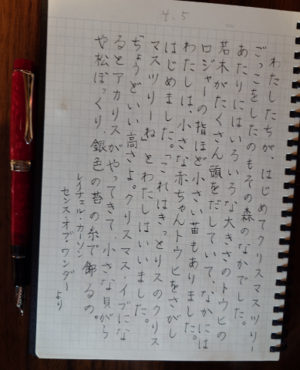 4.5
わたしたちが、はじめてクリスマスツリー
ごっこをしたのもその森のなかでした。
あたりにはいろいろな大きさのトウヒの
若木がたくさん頭をだしていて、なかには
ロジャーの指ほど小さい苗もありました。
わたしは、小さな赤ちゃんトウヒをさがし
はじめました。「これはきっとリスのクリス
マスツリーね」とわたしはいいました。
「ちょうどいい高さよ。クリスマス・イブにな
るとアカリスがやってきて、小さな貝がら
や松ぼっくり、銀色の苔の糸で飾るの。
レイチェル・カーソン
センス・オブ・ワンダー
より